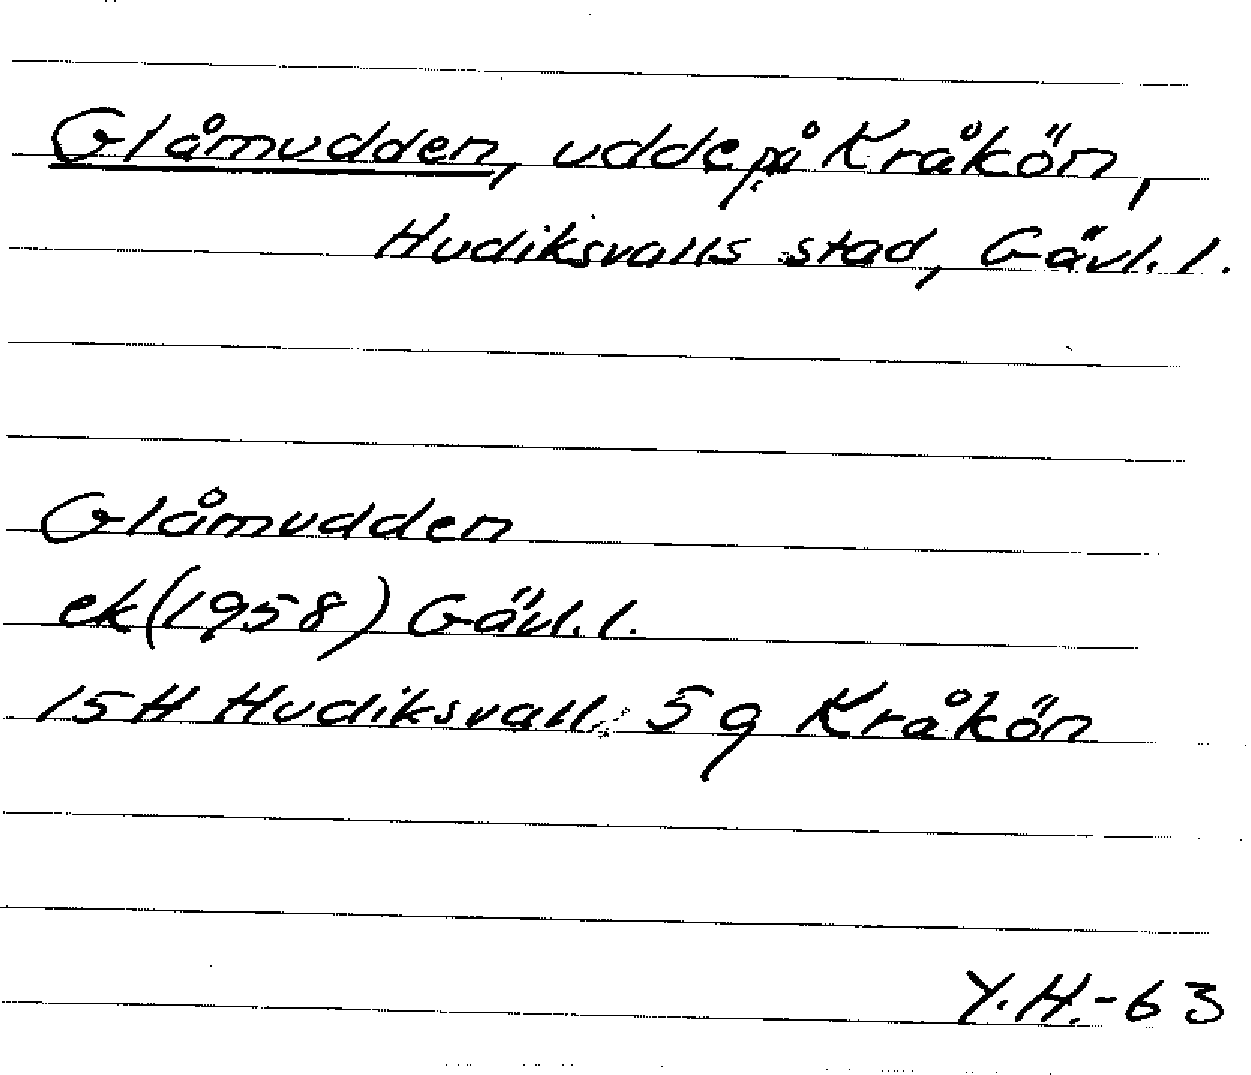 Glåmudden, udde på Kråkön,
Hudiksvalls stad, Gävl. l.
Glåmudden
ek (1958) Gävl. l.
15 H Hudiksvall 5 g Kråkön
Y.H.-63